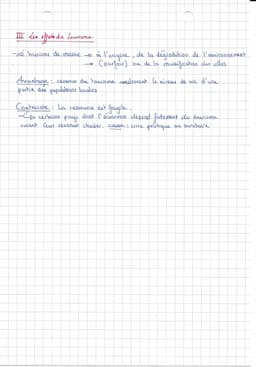 III Les effets du tourisme.
- Le tourisme de masse → à l'origine, de la dégradation de l'environnement
→ (parfois) ou de la muséification des villes
Avantage : revenus du tourisme améliorent le niveau de vie d'une
partie des populations locales
Contrainte : La ressource est fragile.
↳ Les certains pays dont l'économie dépend fortement du tourisme
voient leur revenus chuter. cause : crise politique ou sanitaire